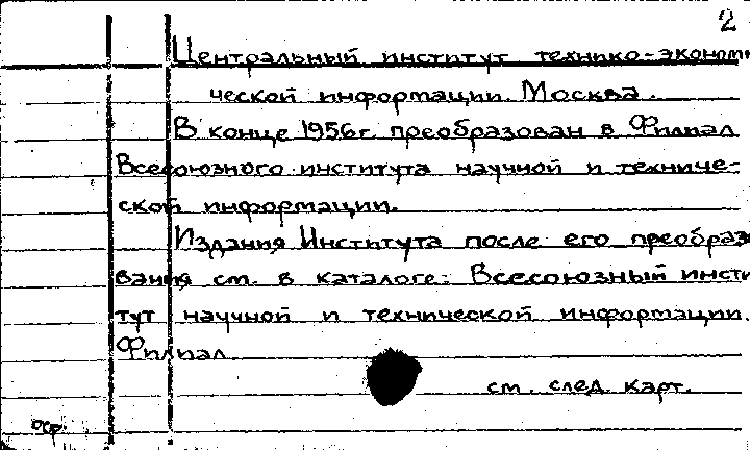 2
Центральный институт технико-эконом
ческой информации. Москва.
В конце 1956г. преобразован в Филиал
Всесоюзного института научной и техниче-
ской информации.
Издания Института после его преобразо
вания см. в каталоге: Всесоюзный инсти
тут научной и технической информации.
Филиал
см. след. карт.